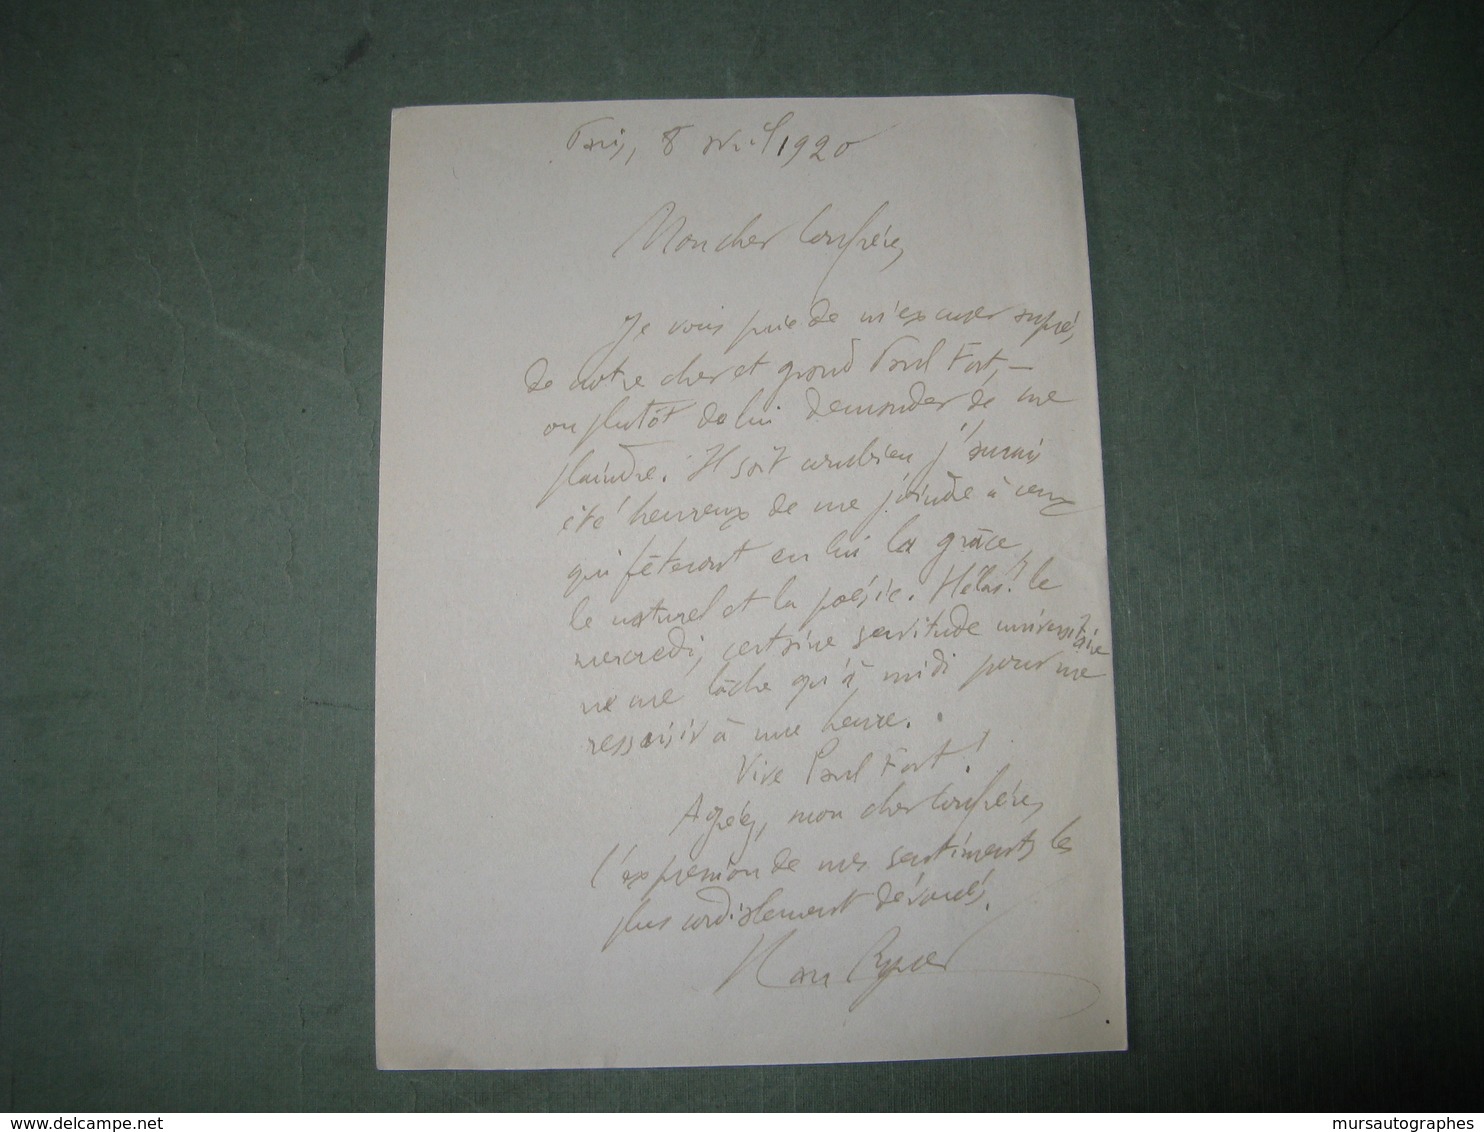 Paris, 8 avril 1920
Mon cher Confrère,
Je vous prie de m'excuser auprès
de notre cher et grand Paul Fort, —
ou plutôt de lui demander de me
plaindre. Il sait combien j'aurais
été heureux de me joindre à ceux
qui fêteront en lui la grâce,
le naturel et la poésie. Hélas! le
mercredi, certaine servitude universitaire
ne me lâche qu'à midi pour me
ressaisir à une heure.
Vive Paul Fort!
Agréez, mon cher Confrère,
l'expression de mes sentiments les
plus cordialement dévoués.
Han Ryner
delcampe.net
mursautographes